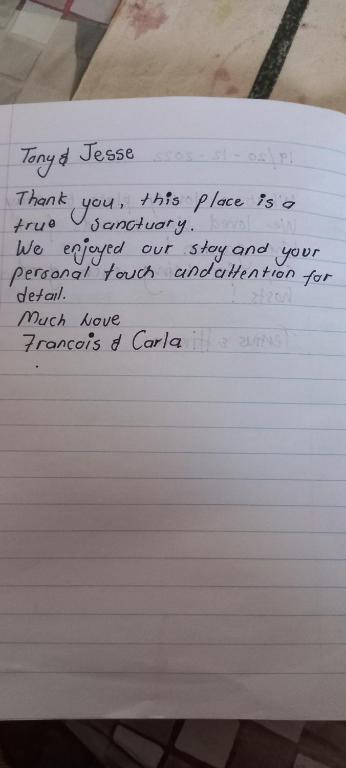 Tony & Jesse
Thank you, this place is a
true sanctuary.
We enjoyed our stay and your
personal touch and attention for
detail.
Much Love
Francois & Carla